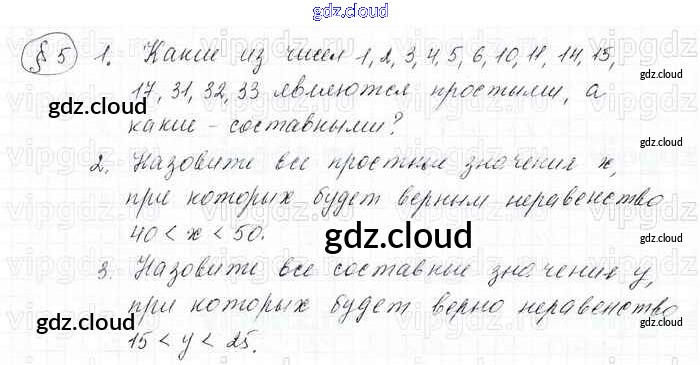 gdz.cloud
§ 5 1. Какие из чисел 1, 2, 3, 4, 5, 6, 10, 11, 14, 15,
17, 31, 32, 33 являются простыми, а
gdz.cloud
gdz.cloud
какие - составными?
2. Назовите все простые значения x,
gdz.cloud
при которых будет верным неравенство
40 < x < 50.
gdz.cloud
gdz.cloud
3. Назовите все составные значения y,
при которых будет верно неравенство
gdz.cloud
gdz.cloud
15 < y < 25.